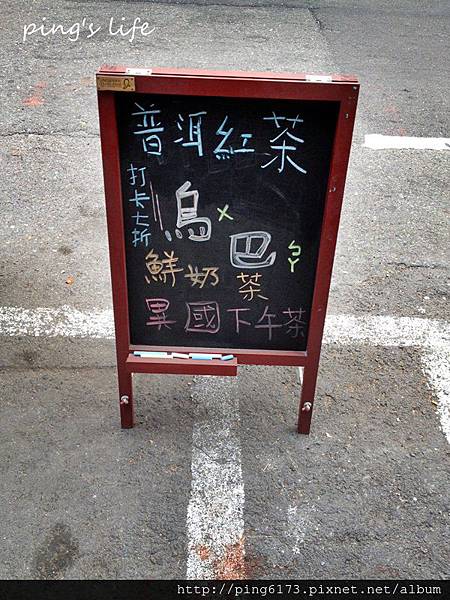 ping's life
普洱紅茶
打卡七折
烏×巴ㄅㄚ
鮮奶茶
異國下午茶
http://ping6173.pixnet.net/album